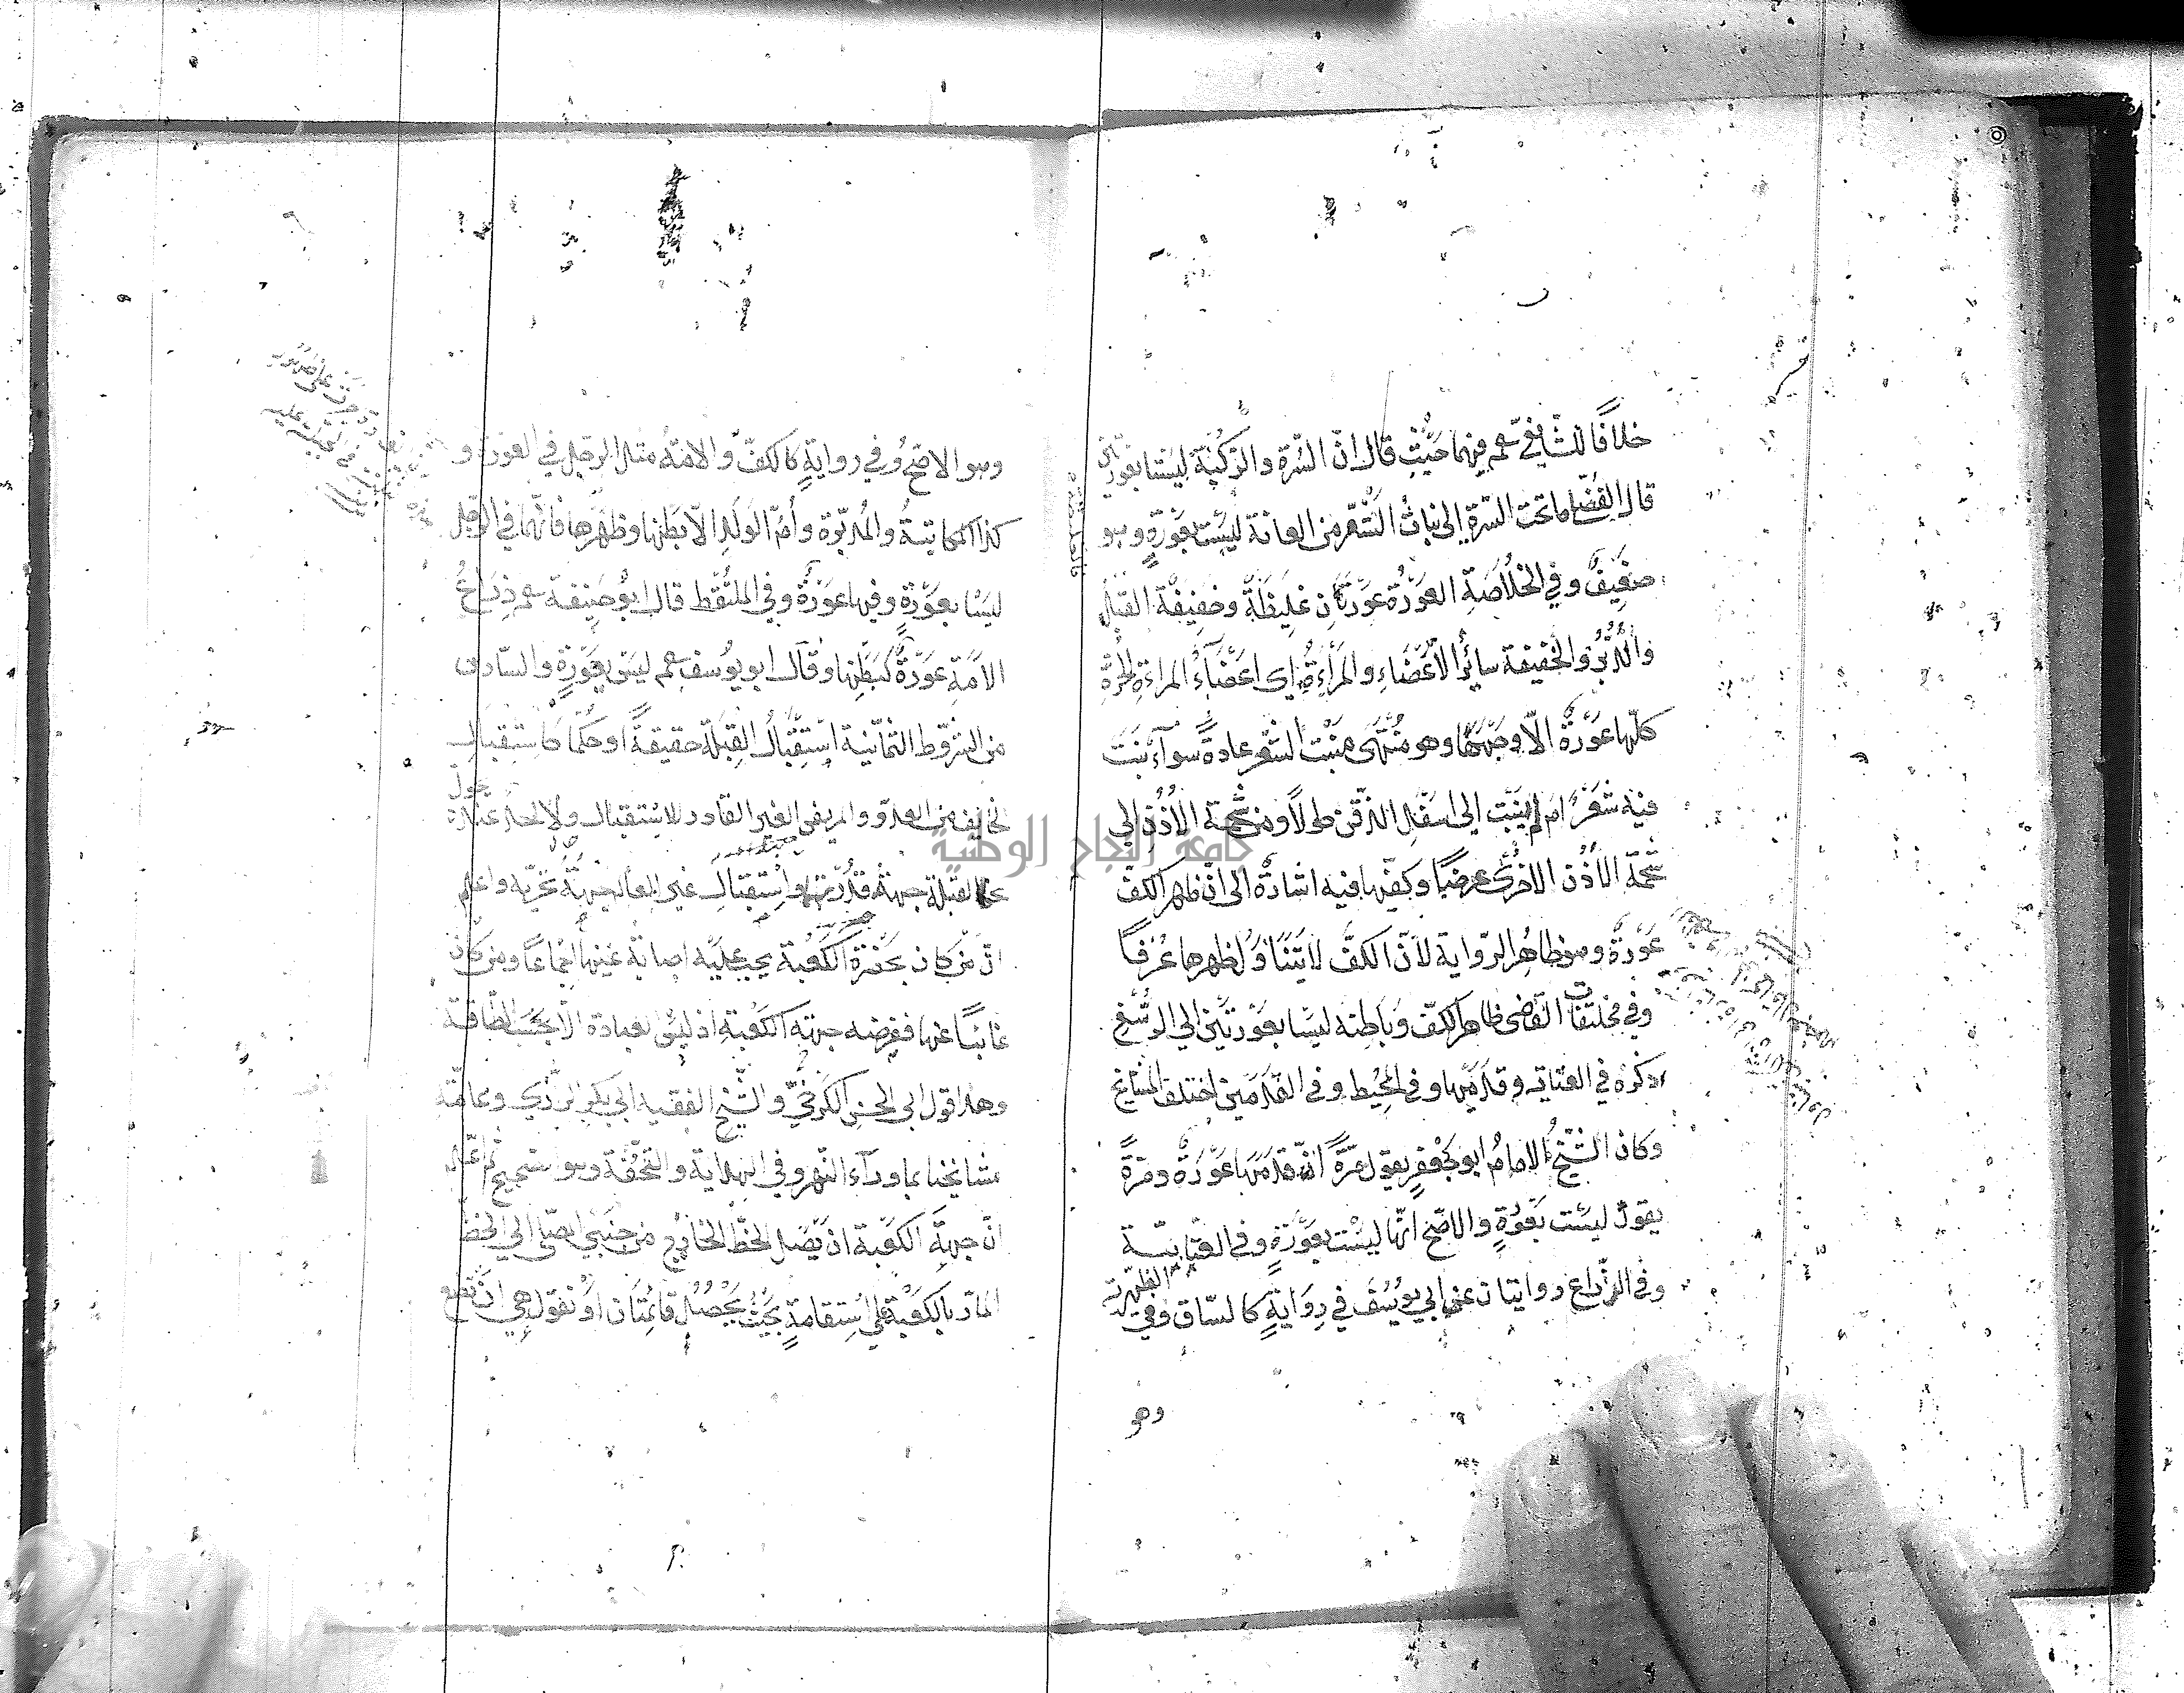 خلافًا للشافعيّ عم فيهما حَيْثُ قال انّ السُّرة والرُّكْبَة ليستا بعورتين
قال الفضلي ما تحت السّرة الى نبات الشَّعْر من العانة ليْسَت بعَوْرَةٍ وهو
ضَعِيفٌ وفي الخُلَاصَةِ العَوْرة عَوْرَتَانِ غلِيظَةٌ وخفِيفَةٌ القبل
والدُّبُرُ والخفيفة سائرُ الأَعْضَاءِ والمَرْأةُ اى اعْضَاءُ المراءة الحرّة
كلّها عَوْرَةٌ الّا وجْهَهَا وهو مُنْتَهى مَنْبَت الشعْر عادةً سوآء نَبَتَ
فيه شَعْرٌ ام لم يَنْبُت الى اسفل الذقن طولًا ومن شحْمة الأُذُنِ الى
شحْمة الأُذُن الأخْرى عرضًا وكفّيها فيه اشارة الى انّ ظهر الكفّ
عَوْرةٌ وهو ظاهرُ الرّواية لانّ الكفّ لا يَتَنَاوَلُ ظهرها عُرْفًا
وفي مختلفات القاضى ظاهرُ الكفّ وباطنه ليسا بعَوْرتَيْنِ الى الرُّسْغِ
ذكرهُ في العتابيه وقدمَيْها وفي المحِيْط وفي القَدَمَيْنِ اختلف المشايخ
وكان الشّيْخُ الامامُ ابو جَعْفَرٍ يقول مَرَّةً انّ قدمَهَا عَوْرةٌ ومَرَّةً
يقولُ ليْسَت بعَوْرةٍ والاصّح انّها ليْسَت بعَوْرَةٍ وفي العتابيّة
الظهيرية
وفي الذّراع روايتان عن ابي يوسُف في رِوَايَةٍ كالسّاق وفي
وهو
وهو الاصّحُ وفي روايةٍ كالكفّ والامَةُ مثل الرجل في العورة و
كذا المكاتبَةُ والمُدَبّرة وأمّ الولَدِ الّا بَطْنها وظَهْرها فانّهما في الرّجل
ليسَا بعَوْرَةٍ وفيها عَوْرةٌ وفي المُلْتَقَط قال ابُو حَنِيفة عم ذِرَاعُ
الامَةِ عَوْرةٌ كبَطْنها وقال ابو يوُسف عم ليس بعَوْرَةٍ والسّادس
من الشروط الثمانية اسْتِقْبَالُ القِبْلة حقيقةً او حكمًا كاستِقْبال
الخايف من العدوّ والمريض الغير القادر للاستقبال
القبلة جهة قدرتها واستِقْبَالِ غير العالم جهةُ تحرّيه واعلم
انّ من كان بحضرة الكَعْبة يجب عليْه اصابة عَيْنها اجْماعًا ومن كان
غايبًا عنها ففرضه جهة الكعْبةِ اذ ليس العبادة الّا بحَسَب الطّاقة
وهذا قول ابى الحسن الكرْخيّ والشّيْخ الفقيه ابي بكر الرّازي وعامّة
مشايخنا بما ورآء النّهر وفي الهِدَايَة والتحْفَة وهو الصحيح ثم اعلم
انّ جهةَ الكعْبَة ان يَصِل الخطّ الخارج من جنبَيْ المصلّى الى الخط
المارّ بالكَعْبة على اسْتِقامةٍ بحَيْثُ يحْصُل قائِمَتان اوْ نقول هى ان تقع
جامعة النجاح الوطنية